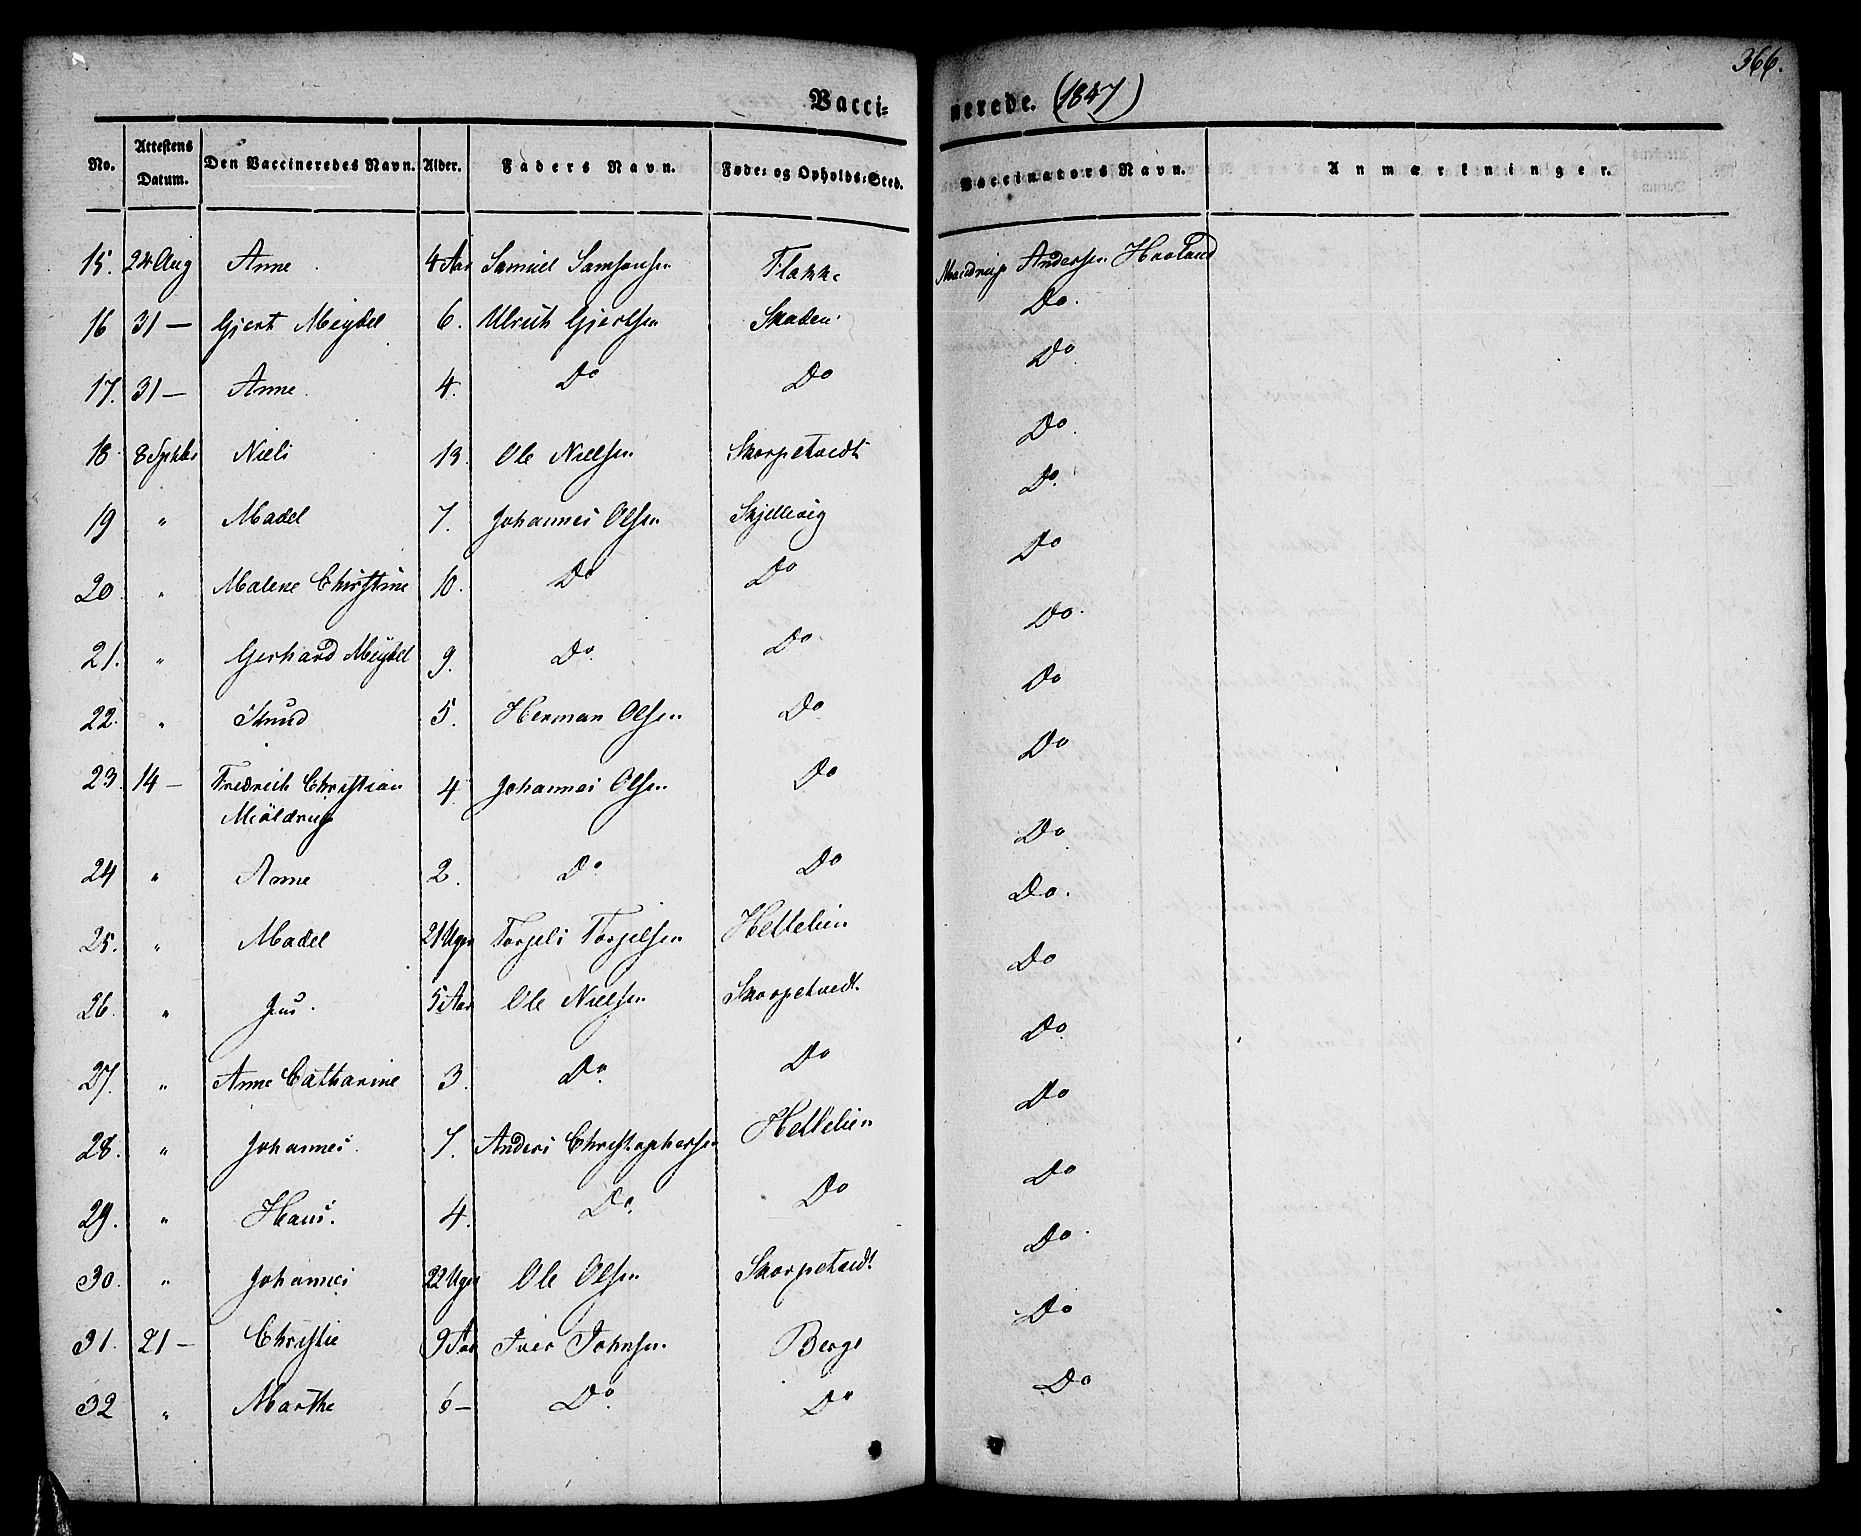 366.
Vaccinerede. (1847)
No. Attestens Datum. Den Vaccineredes Navn. Alder. Faders Navn. Føde- og Opholds-Sted. Vaccinators Navn. Anmærkninger.
15. 24 Aug Anne 4 Aar Samuel Samsonsen Flakke Mandrup Andersen Haaland
16 31 — Gjert Meydel 6. Ulrich Gjertsen Skaden. Do.
17. 31 — Anne 4. Do Do Do
18 8 Sptbr Niels 13. Ole Nielsen Skorpetvedt Do.
19 " Madel 7. Johannes Olsen Skjellevig Do.
20 " Malene Christine 10. Do Do Do
21. " Gerhard Meydel 9. Do. Do Do.
22. " Knud 5. Herman Olsen Do Do
23. 14 — Fredrich Christian 4. Johannes Olsen Do Do
Möldrup
24 " Anne 2. Do Do Do
25. " Madel 21 Uger Torjels Torjelsen Hellelien Do.
26. " Jens. 5 Aar Ole Nielsen Skorpetvedt. Do
27. " Anne Catharine 3. Do. Do Do
28. " Johannes. 7. Anders Christophersen Hellelien Do
29. " Hans. 4. Do. Do Do
30. " Johannes 22 Uger Ole Olsen Skorpetvedt Do.
31. 21 — Christie 9 Aar Iver Johnsen. Berge Do
32 " Marthe 6 — Do. Do Do